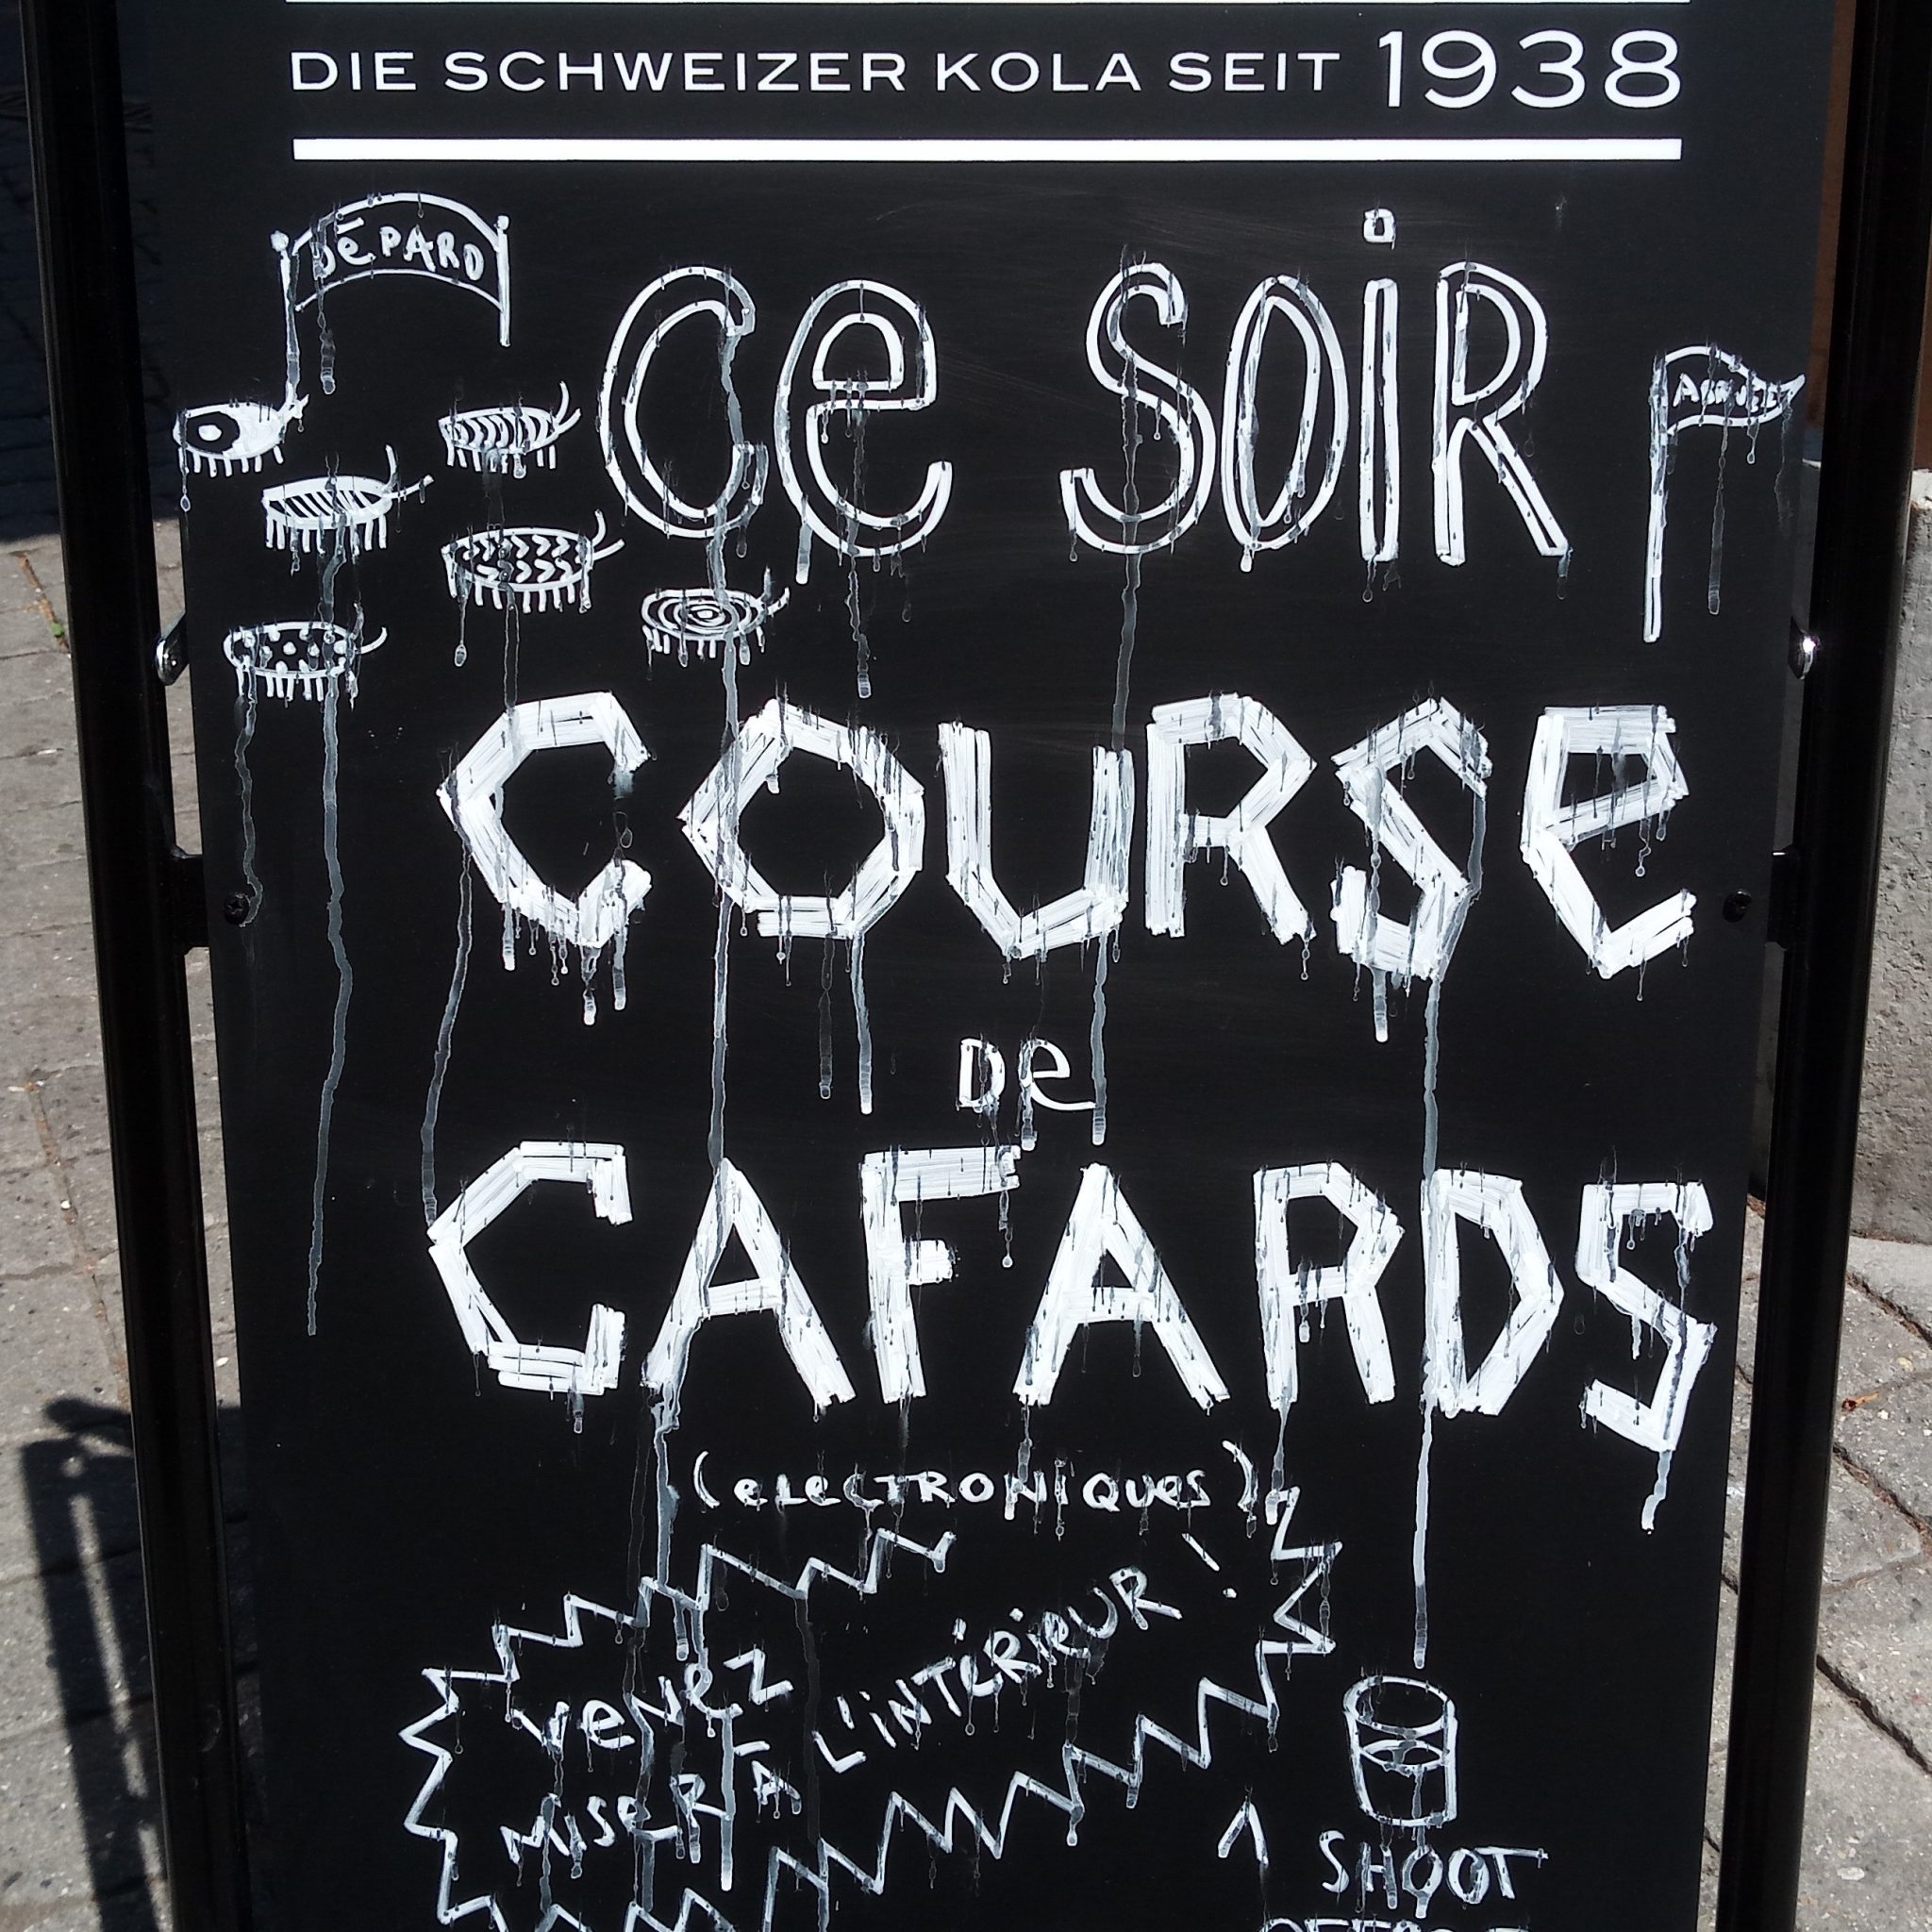 DIE SCHWEIZER KOLA SEIT 1938
DÉPARD
CE SOIR
ARRIVÉE
COURSE
DE
CAFARDS
(ELECTRONIQUES)
VENEZ
MISER À L'INTÉRIEUR !
1 SHOOT